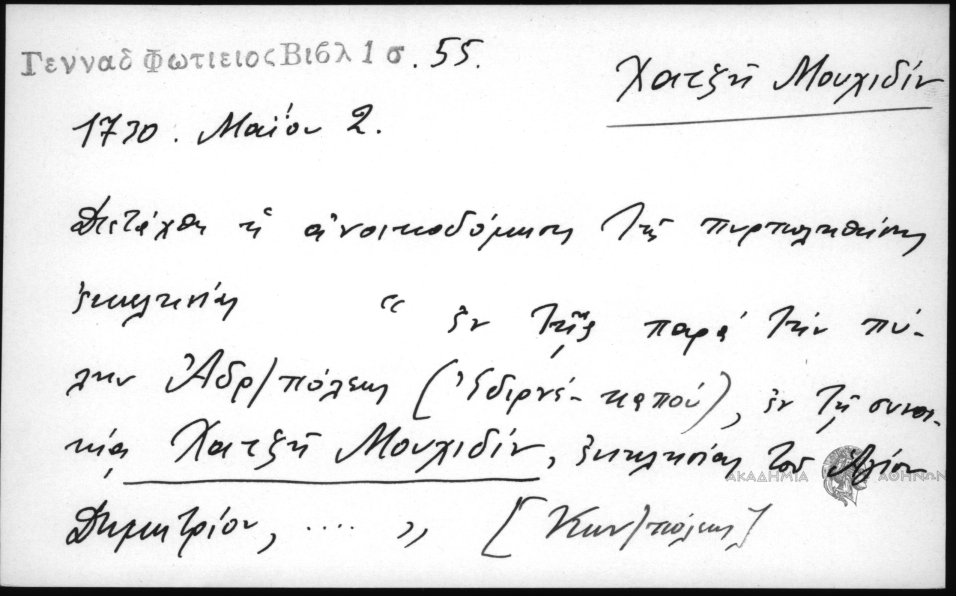 Γενναδ Φωτιειος Βιβλ 1 σ. 55.
Χατζῆ Μουχιδίν
1730. Μαΐου 2.
Διετάχθη ἡ ἀνοικοδόμησις τῆς πυρποληθείσης
ἐκκλησίας " ἐν τῇ παρὰ τὴν πύ-
λην Ἀδρ/πόλεως (Ἐδιρνέ-καπού), ἐν τῇ συνοι-
κίᾳ Χατζῆ Μουχιδίν, ἐκκλησίας τοῦ Ἁγίου
Δημητρίου, .... " [Κων/πόλεως]
ΑΚΑΔΗΜΙΑ ΑΘΗΝΩΝ